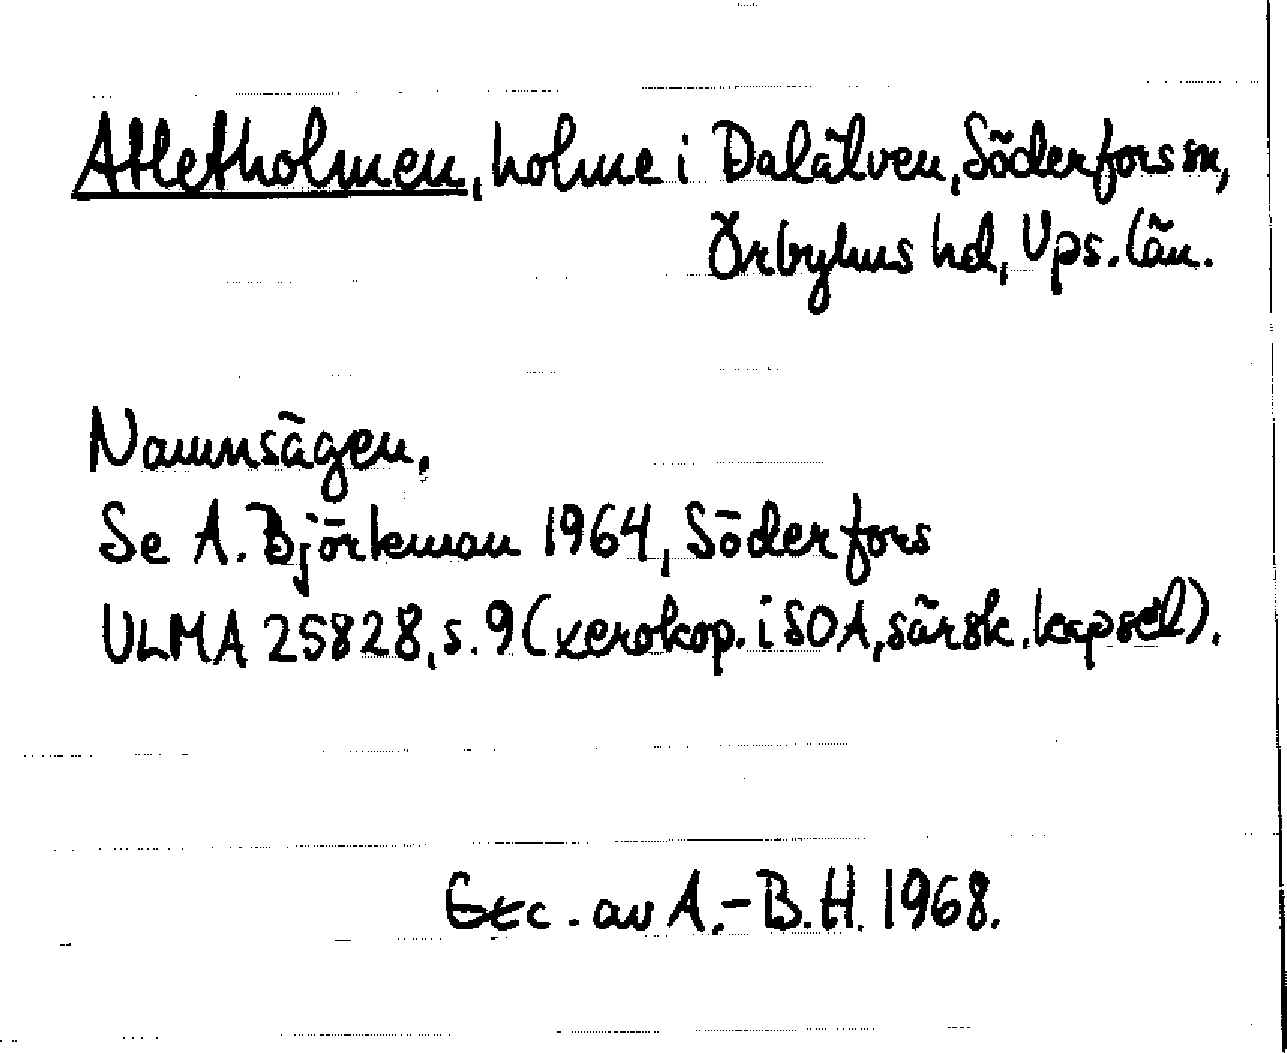 Atletholmen, holme i Dalälven, Söderfors sn,
Örbyhus hd, Ups. län.
Namnsägen.
Se A. Björkman 1964, Söderfors
ULMA 25828, s. 9 (xerokop. i SOA, särsk. kapsel).
Exc. av A.-B.H. 1968.